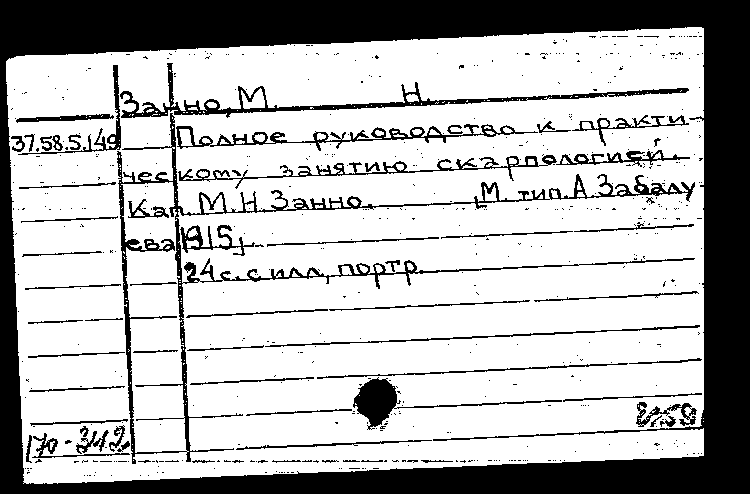 Занно, М. Н.
37.58.5.149 Полное руководство к практи-
ческому занятию скарпологией.
Кап. М.Н. Занно. [М. тип. А. Забалу
ева 1915].
24 с. с илл., портр.
170-342